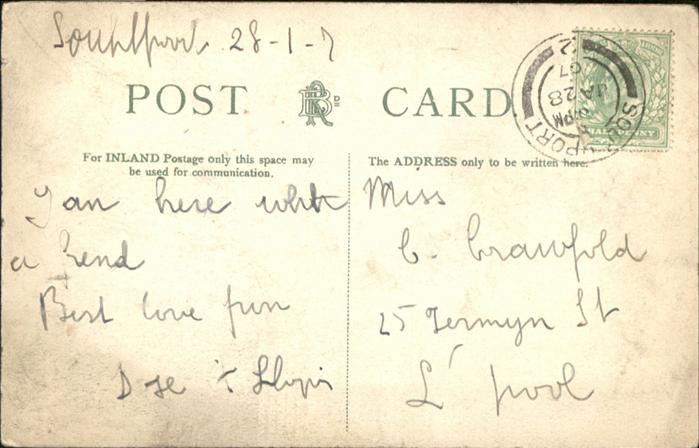 Southport 28-1-7
POST CARD
RB Dº
SOUTHPORT
2 PM
JA 28
07
12
HALFPENNY
For INLAND Postage only this space may
be used for communication.
The ADDRESS only to be written here.
I am here with
a frend
Best love from
Miss
C. Crawfold
25 Jermyn St
L'pool